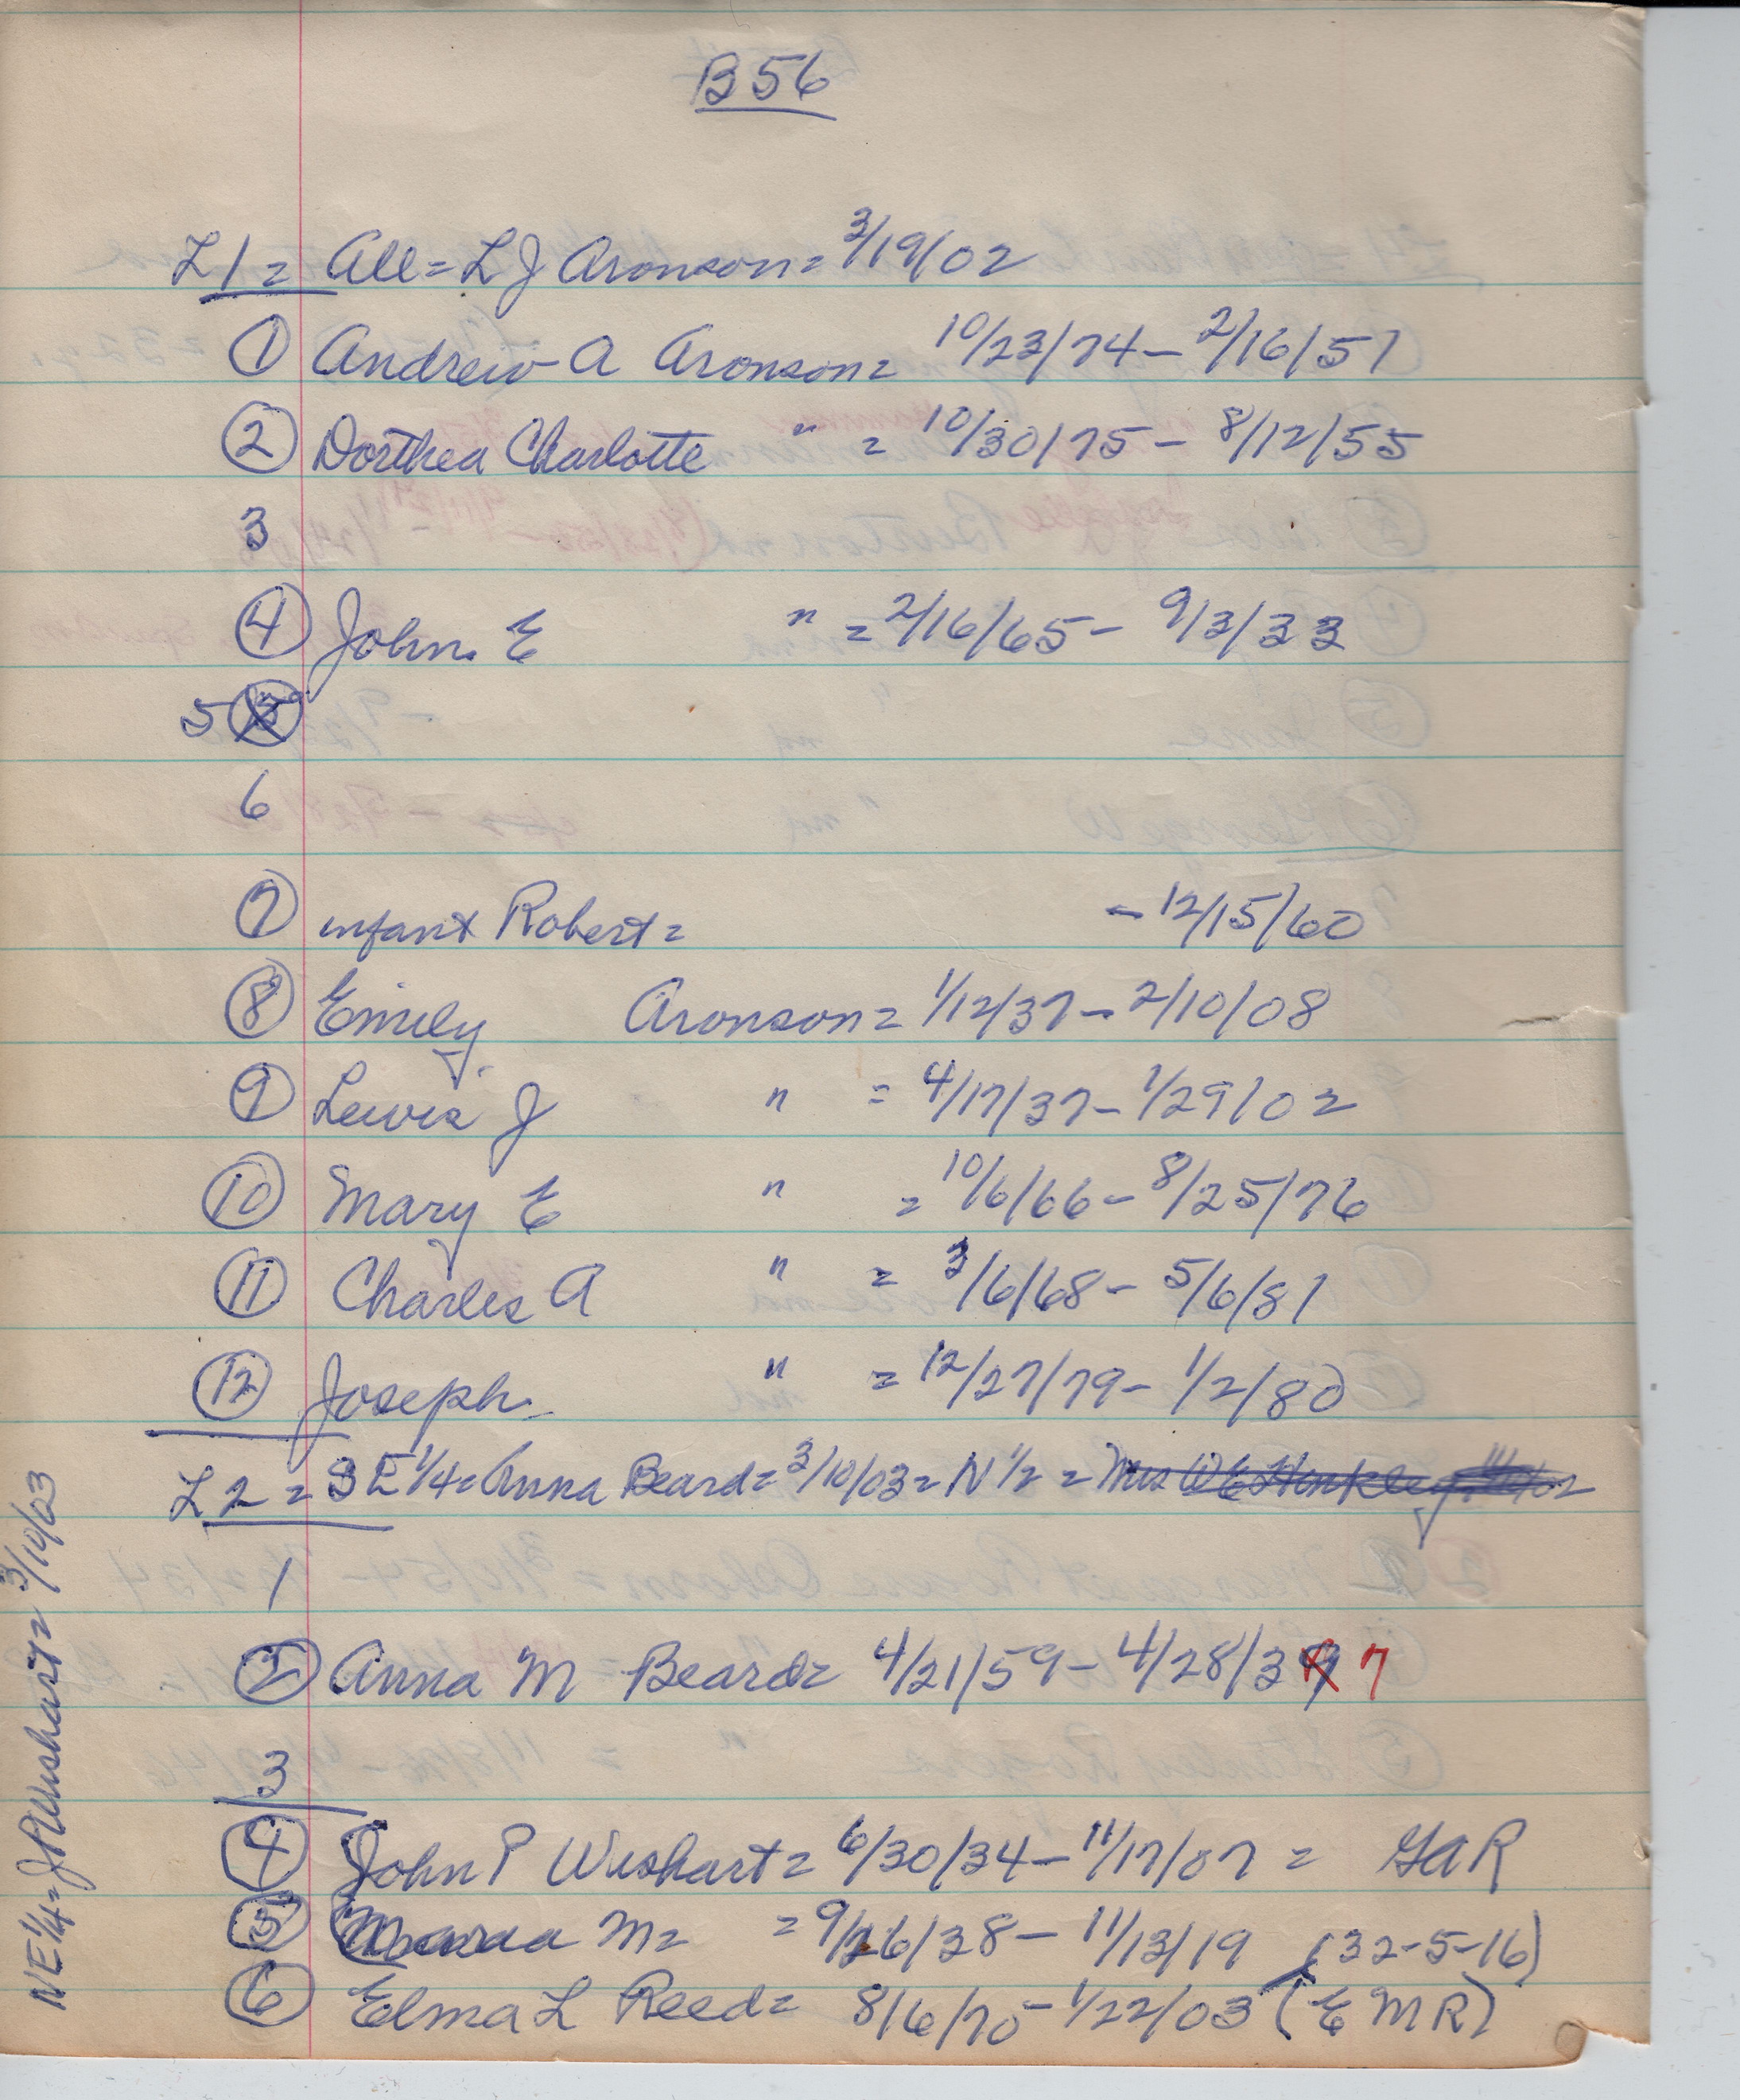 B56
L1 = All = L J Aronson = 3/19/02
1 Andrew A Aronson = 10/23/74 - 2/16/57
2 Dorthea Charlotte " = 10/30/75 - 8/12/55
3
4 John E " = 2/16/65 - 9/3/33
5
6
7 infant Robert = - 12/15/60
8 Emily Aronson = 1/12/37 - 2/10/08
9 Lewis J " = 4/17/37 - 1/29/02
10 Mary E " = 10/6/66 - 8/25/76
11 Charles A " = 3/6/68 - 5/6/81
12 Joseph " = 12/27/79 - 1/2/80
L2 = SE 1/4 = Anna Beard = 3/10/03 = N 1/2 = Mrs W E Hinkley
1
2 Anna M Beard = 4/21/59 - 4/28/3 7
3
4 John P Wishart = 6/30/34 - 11/17/07 = GAR
5 M = 9/26/38 - 11/13/19 (32-5-16)
6 Elma L Reed = 8/6/70 - 1/22/03 (E M R)
NE 1/4 = J P Wishart = 3/10/03